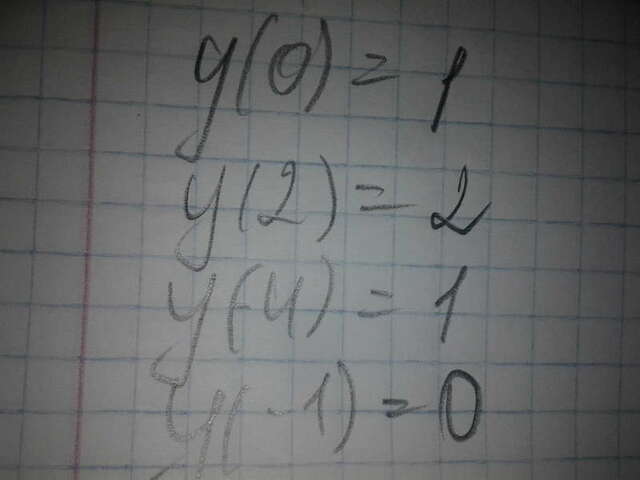 y(0) = 1
y(2) = 2
y(-4) = 1
y(-1) = 0